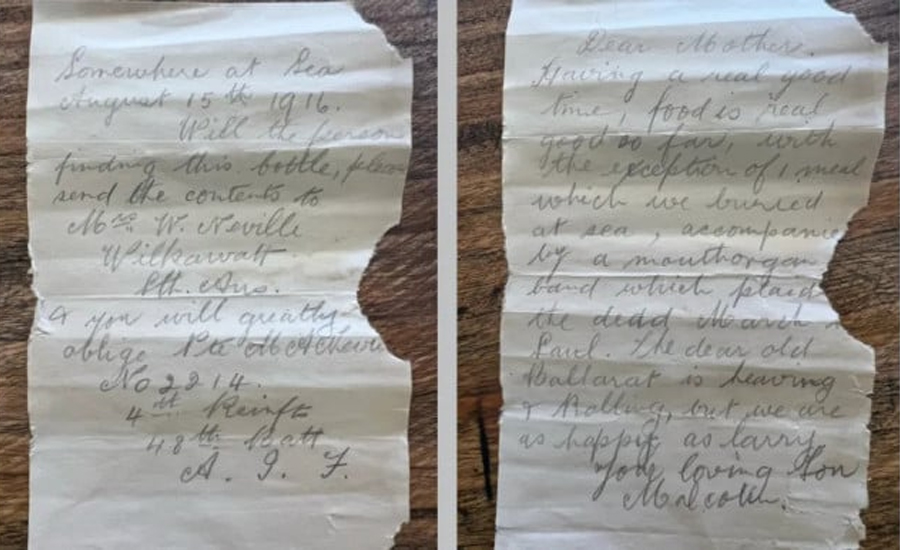 Somewhere at Sea
August 15th 1916.
Will the person
finding this bottle, please
send the contents to
Mrs W. Neville
Wilkawatt
Sth. Aus.
& you will greatly
oblige Pte M A Nevill
No 2914.
4th Reinft
48th Batt
A. I. F.
Dear Mother.
Having a real good
time, food is real
good so far, with
the exception of 1 meal
which we buried
at sea, accompanie
by a mouthorgan
band which plaid
the dead March
Saul. The dear old
Ballarat is heaving
& Rolling, but we are
as happy as larry
Your loving Son
Malcolm.